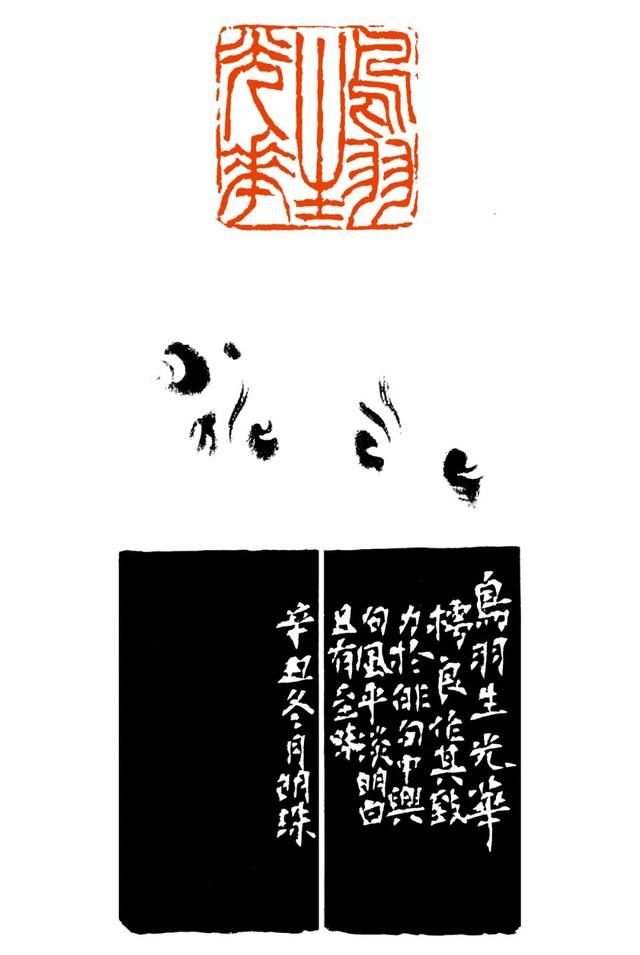 鳥羽
生
光華
鳥羽生光華
樗良作其致
力於俳句中興
句風平淡明白
且有至味
辛丑冬月明珠